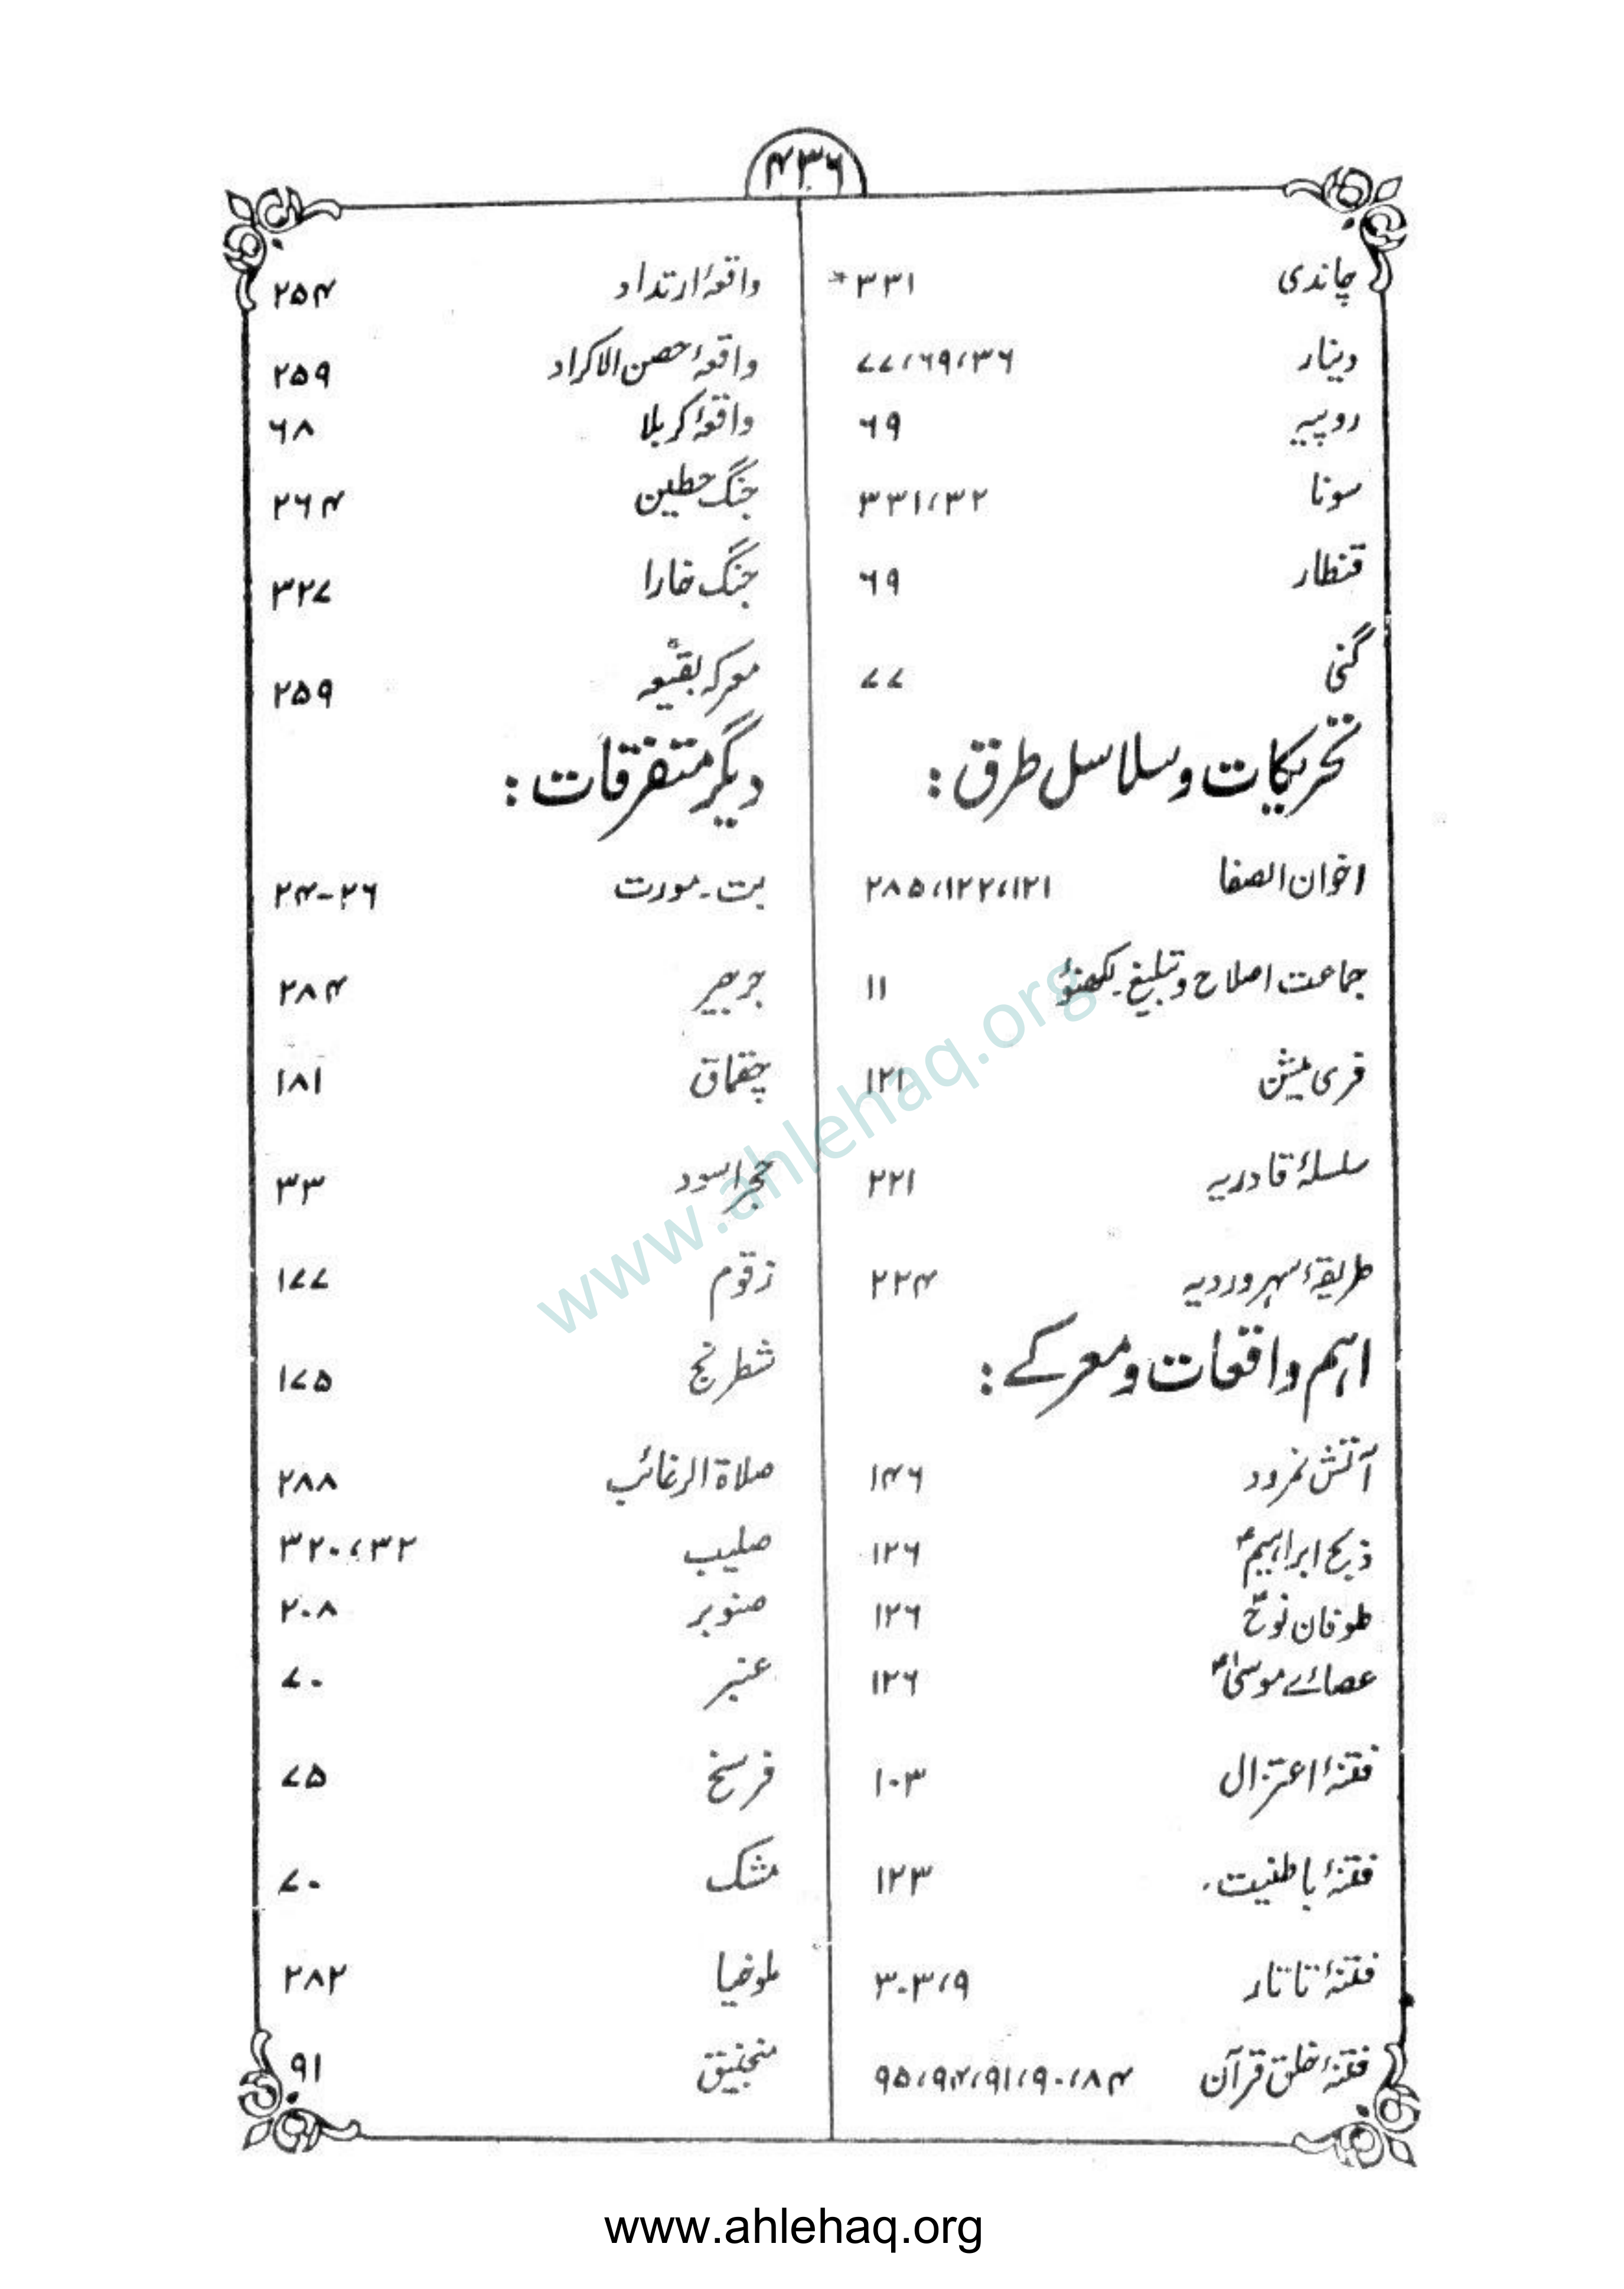 ۴۳۶
چاندی ۳۳۱*
دینار ۳۶،۶۹،۷۷
روپیہ ۶۹
سونا ۳۲،۳۳۱
قنطار ۶۹
گنی ۷۷
تحریکات وسلاسل طرق :
اخوان الصفا ۱۲۱،۱۲۲،۲۸۵
جماعت اصلاح وتبلیغ۔لکھنؤ ۱۱
فری میشن ۱۲۱
سلسلۂ قادریہ ۲۲۱
طریقۂ سہروردیہ ۲۲۴
اہم واقعات ومعرکے :
آتش نمرود ۱۴۶
ذبح ابراہیمؑ ۱۲۶
طوفان نوحؑ ۱۲۶
عصائے موسیٰؑ ۱۲۶
فتنۂ اعتزال ۱۰۳
فتنۂ باطنیت۔ ۱۲۳
فتنۂ تاتار ۹،۳۰۳
فتنۂ خلق قرآن ۸۴،۹۰،۹۱،۹۴،۹۵
واقعۂ ارتداد ۲۵۴
واقعۂ حصن الاکراد ۲۵۹
واقعۂ کربلا ۶۸
جنگ حطین ۲۶۴
جنگ خارا ۳۲۷
معرکہ بقیعہ ۲۵۹
دیگر متفرقات :
بت۔مورت ۲۶-۲۴
جرجیر ۲۸۴
چقماق ۱۸۱
حجر اسود ۳۳
زقوم ۱۷۷
شطرنج ۱۷۵
صلاۃ الرغائب ۲۸۸
صلیب ۳۲،۳۲۰
صنوبر ۲۰۸
عنبر ۷۰
فرسخ ۷۵
مشک ۷۰
ملوخیا ۲۸۲
منجنیق ۹۱
www.ahlehaq.org
www.ahlehaq.org